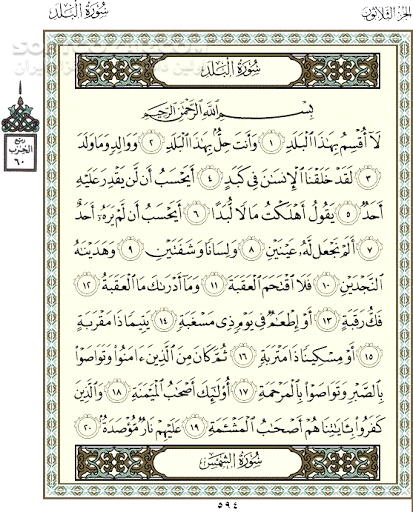 سُورَةُ الْبَلَدِ
الجُزءُ الثَّلَاثُونَ
سُورَةُ الْبَلَدِ
بِسْمِ اللَّهِ الرَّحْمَٰنِ الرَّحِيمِ
لَا أُقْسِمُ بِهَٰذَا الْبَلَدِ ١ وَأَنتَ حِلٌّ بِهَٰذَا الْبَلَدِ ٢ وَوَالِدٍ وَمَا وَلَدَ
٣ لَقَدْ خَلَقْنَا الْإِنسَٰنَ فِي كَبَدٍ ٤ أَيَحْسَبُ أَن لَّن يَقْدِرَ عَلَيْهِ
أَحَدٌ ٥ يَقُولُ أَهْلَكْتُ مَالًا لُّبَدًا ٦ أَيَحْسَبُ أَن لَّمْ يَرَهُ أَحَدٌ
٧ أَلَمْ نَجْعَل لَّهُ عَيْنَيْنِ ٨ وَلِسَانًا وَشَفَتَيْنِ ٩ وَهَدَيْنَٰهُ
النَّجْدَيْنِ ١٠ فَلَا اقْتَحَمَ الْعَقَبَةَ ١١ وَمَا أَدْرَىٰكَ مَا الْعَقَبَةُ ١٢
فَكُّ رَقَبَةٍ ١٣ أَوْ إِطْعَٰمٌ فِي يَوْمٍ ذِي مَسْغَبَةٍ ١٤ يَتِيمًا ذَا مَقْرَبَةٍ
١٥ أَوْ مِسْكِينًا ذَا مَتْرَبَةٍ ١٦ ثُمَّ كَانَ مِنَ الَّذِينَ ءَامَنُوا وَتَوَاصَوْا
بِالصَّبْرِ وَتَوَاصَوْا بِالْمَرْحَمَةِ ١٧ أُولَٰئِكَ أَصْحَٰبُ الْمَيْمَنَةِ ١٨ وَالَّذِينَ
كَفَرُوا بِـَٔايَٰتِنَا هُمْ أَصْحَٰبُ الْمَشْـَٔمَةِ ١٩ عَلَيْهِمْ نَارٌ مُّؤْصَدَةٌ ٢٠
سُورَةُ الشَّمْسِ
ربع
الحزب
٦٠
٥٩٤